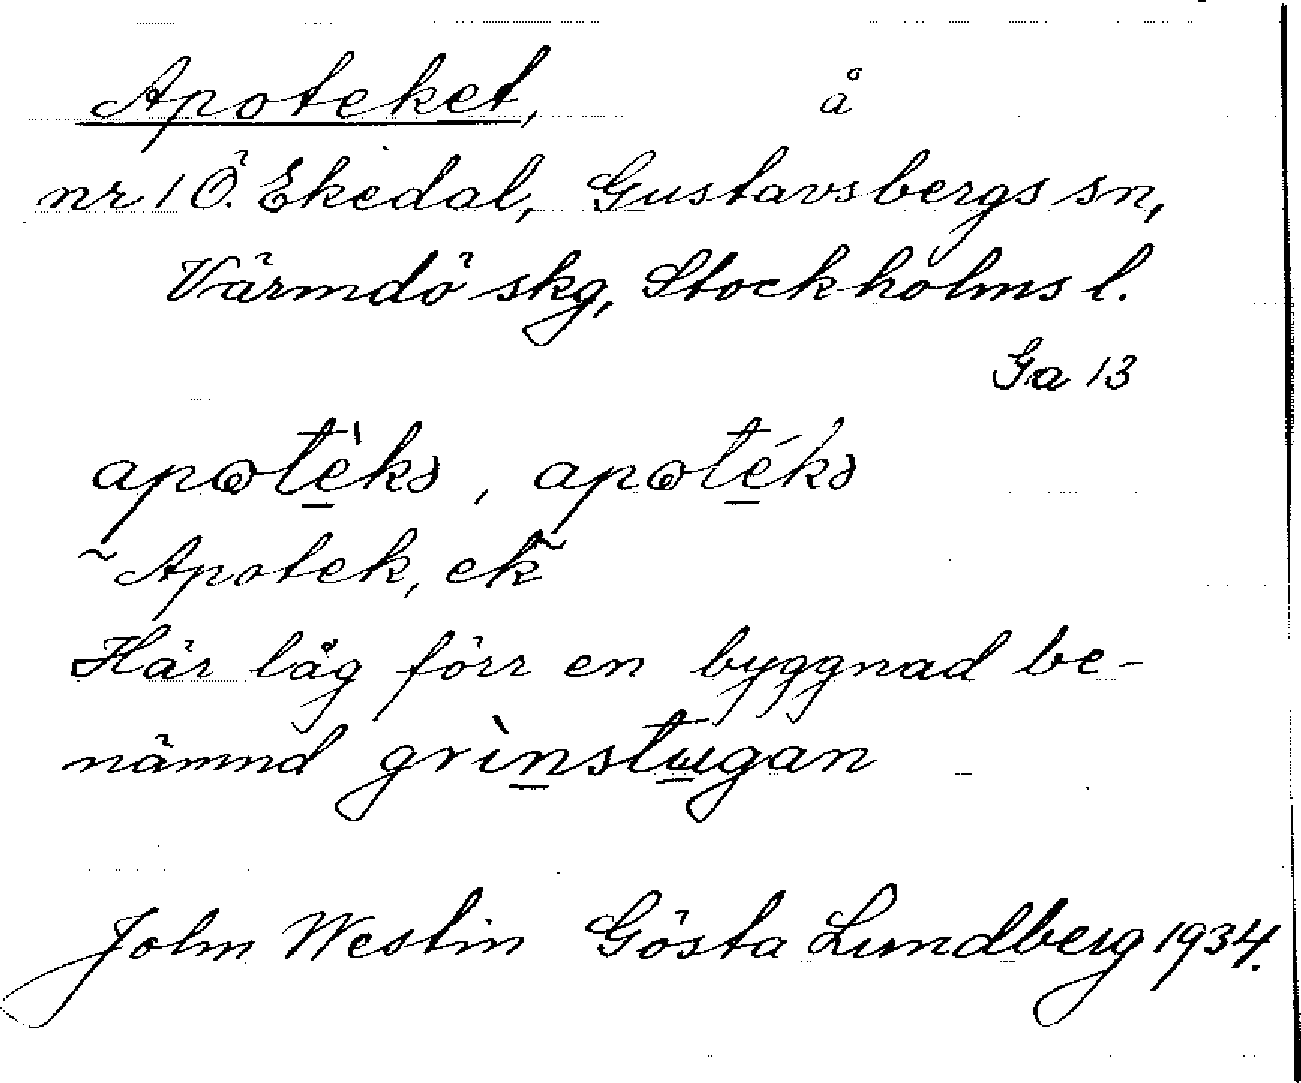 Apoteket, å
nr 1 Ö. Ekedal, Gustavsbergs sn,
Värmdö skg, Stockholms l.
Ga 13
apωtèkə, apωtékə
~Apotek, ek~
Här låg förr en byggnad be-
nämnd grìnstɯgan
John Westin Gösta Lundberg 1934.